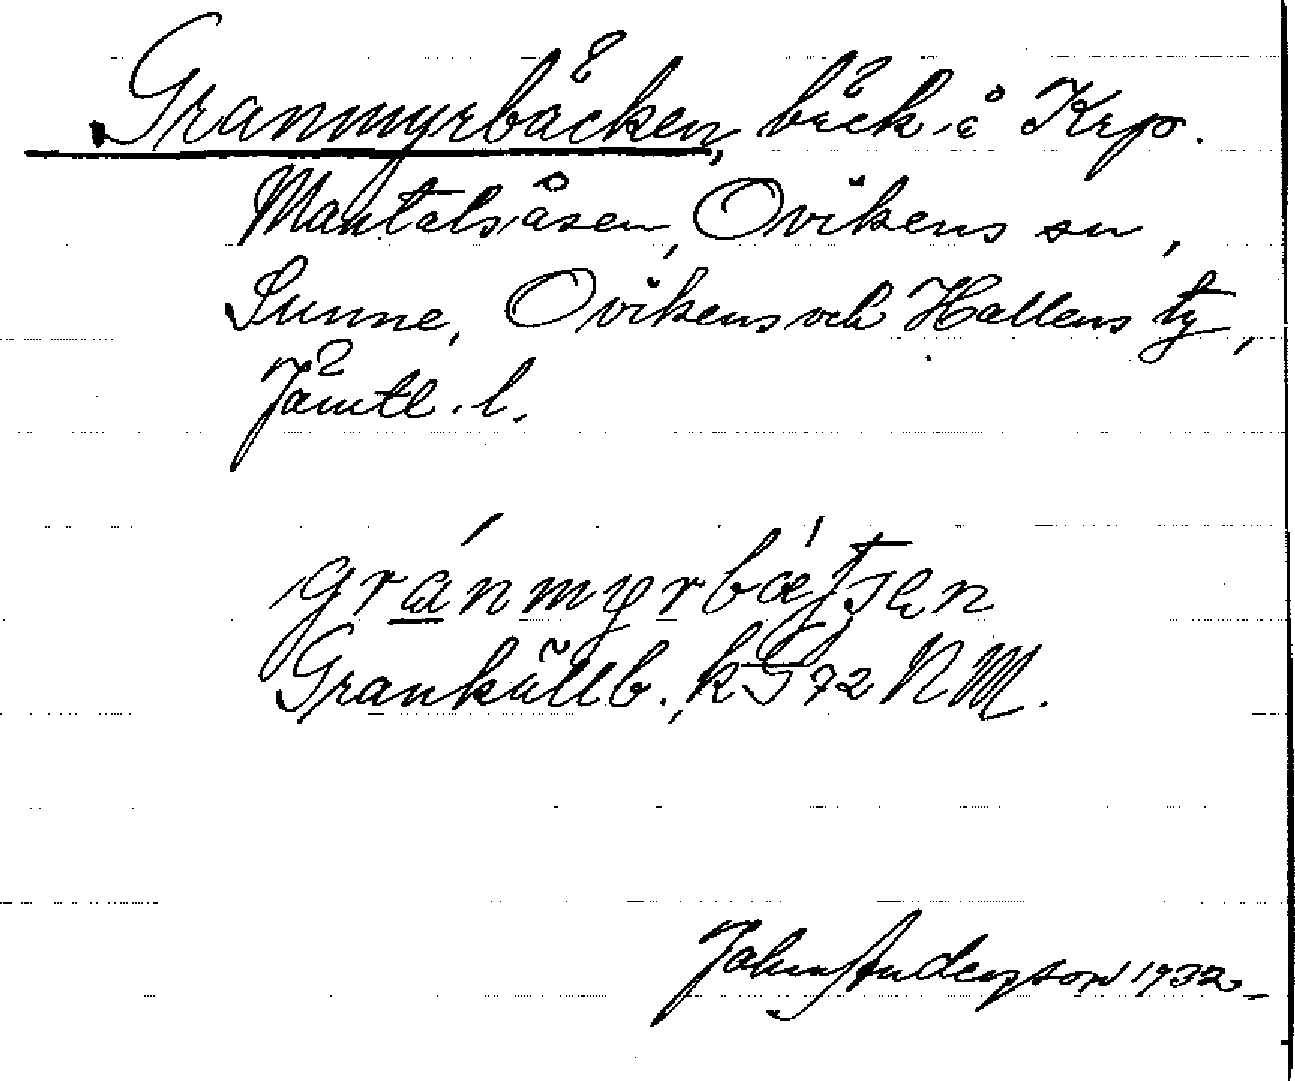 Granmyrbäcken, bäck i Krp.
Mantalsåsen, Ovikens sn,
Sunne, Ovikens och Hallens tg,
Jämtl. l.
gránmyrbæ̀tʃen
Grankällb., k 572 NM.
John Anderson 1932.